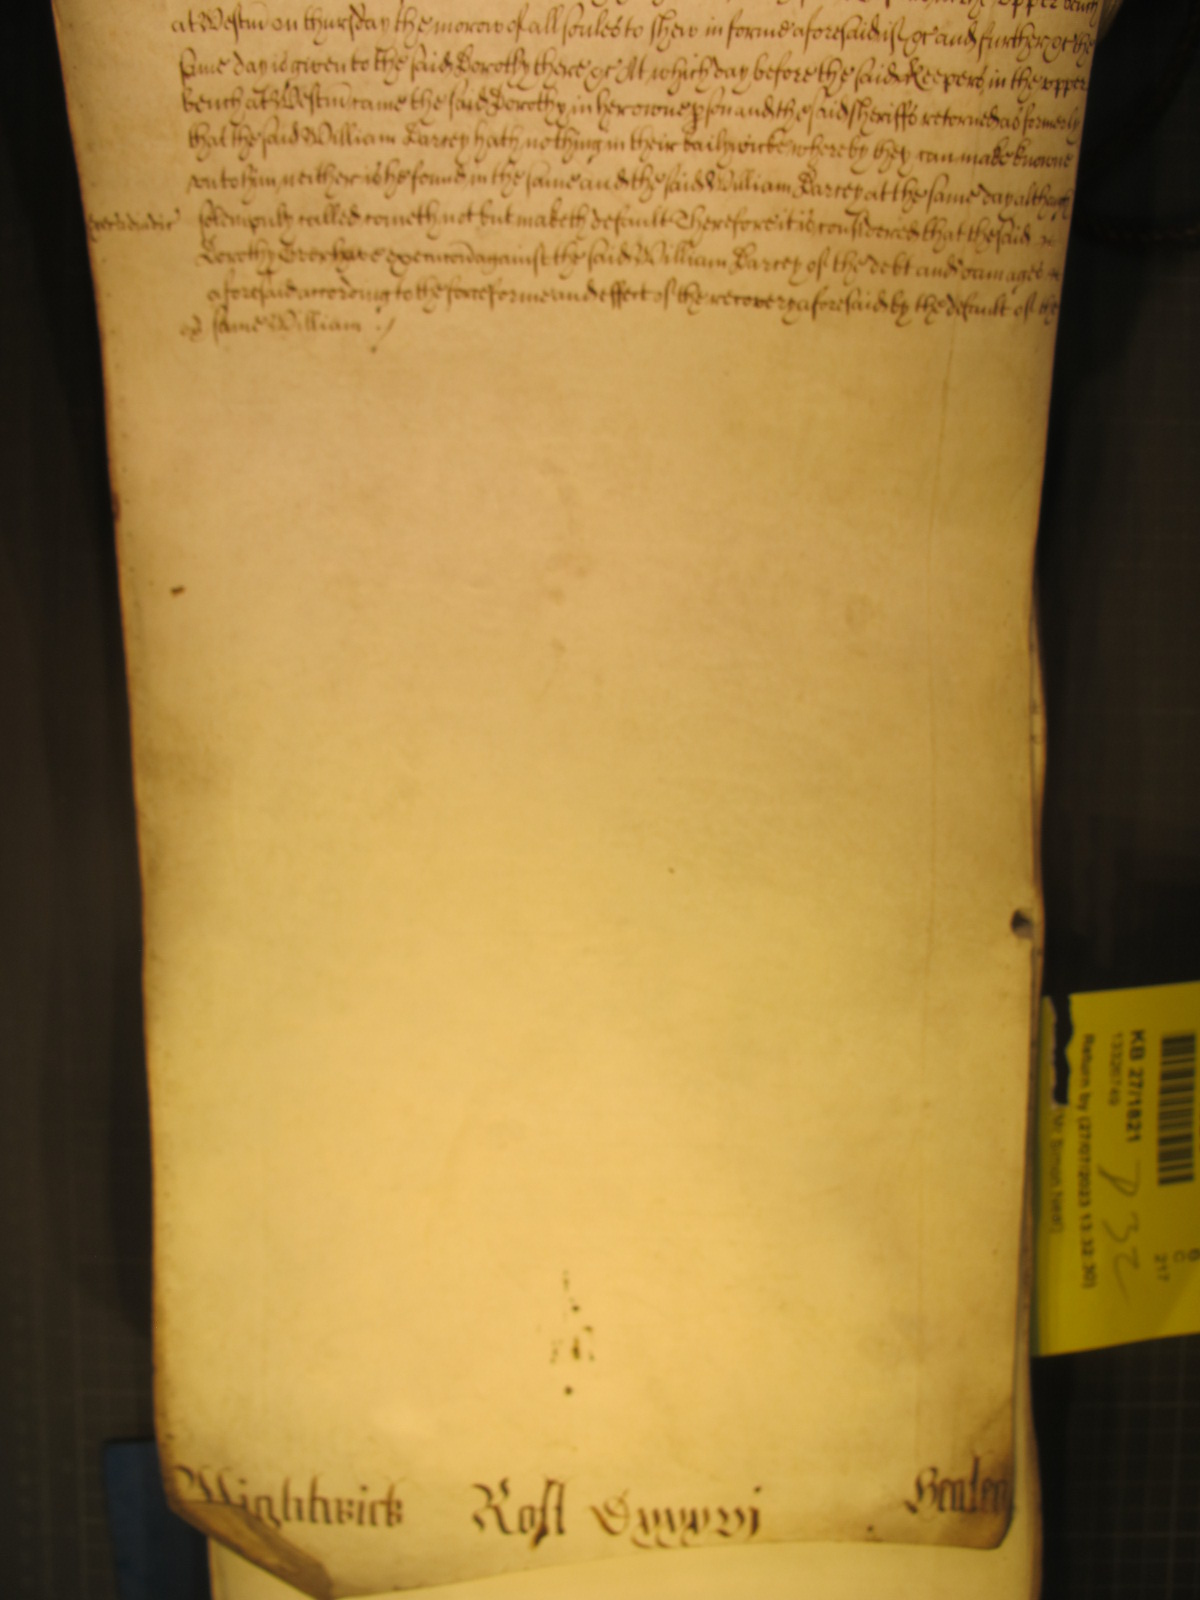 in the upper bench
at Westm̄ on thursday the morow of all soules to shew in forme aforesaid if &c and further &c the
same day is given to the said Dorothy there &c At which day before the said Keepers in the upper
bench at Westm̄ came the said Dorothy in her owne pson and the said sheriffs retorned as formerly
that the said William Darcey hath nothing in their bailywicke whereby they can made knowne
unto him neither is he found in the same and the said William Darcey at the same day although
solempnly called cometh not but maketh default Therefore it is considered that the said
Dorothy have execucōn against the said William Darcey of the debt and damages
aforesaid according to the force forme and effect of the recovery aforesaid by the default of the
same William
Wightwick Roll Henley
KB 27/1821
13326749
Return by (27/07/2023 13:32:30)
217
P 32